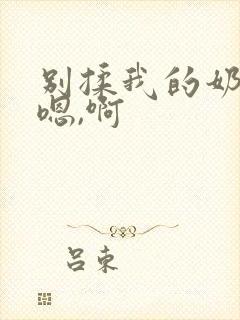 别揉我的奶
嗯,啊
吕束